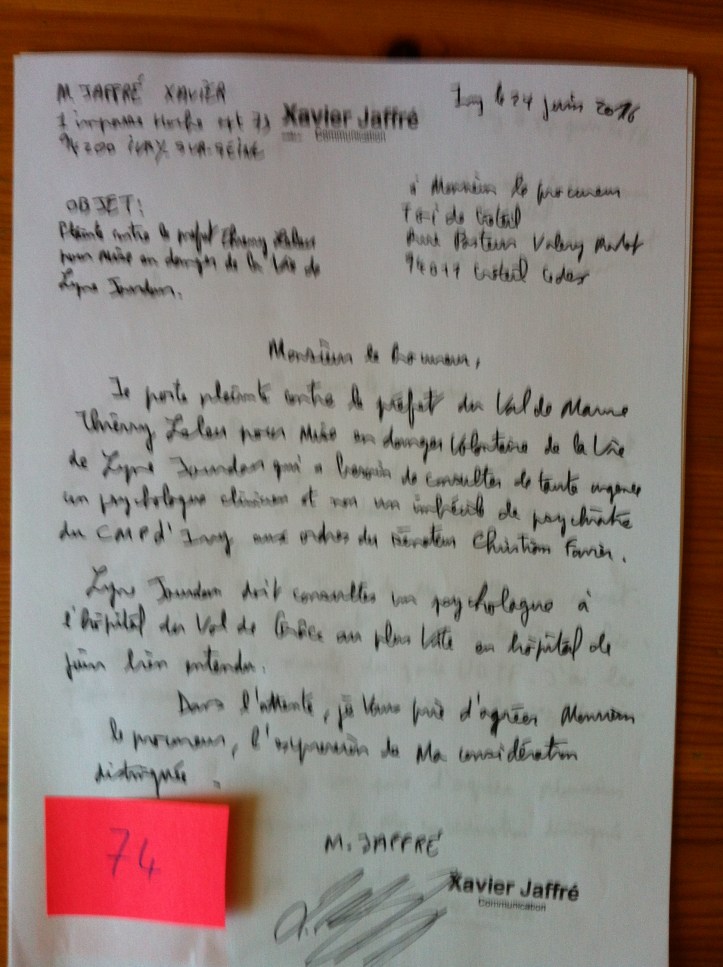 M. JAFFRÉ XAVIER
1 impasse Hoche apt 73
94200 IVRY SUR SEINE
Xavier Jaffré
Communication
Ivry le 24 juin 2016
à Monsieur le procureur
T G i de Créteil
Rue Pasteur Valery Radot
94011 Créteil Cedex
OBJET:
Plainte contre le préfet Thierry Leleu
pour mise en danger de la vie de
Lyne Jourdan.
Monsieur le Procureur,
Je porte plainte contre le préfet du Val de Marne
Thierry Leleu pour mise en danger volontaire de la vie
de Lyne Jourdan qui a besoin de consulter de toute urgence
un psychologue clinicien et non un imbécile de psychiatre
du CMP d'Ivry aux ordres du sénateur Christian Favier.
Lyne Jourdan doit consulter un psychologue à
l'hôpital du Val de Grâce au plus vite en hôpital de
jour bien entendu.
Dans l'attente, je vous prie d'agréer Monsieur
le procureur, l'expression de ma considération
distinguée.
M. JAFFRÉ
Xavier Jaffré
Communication
74